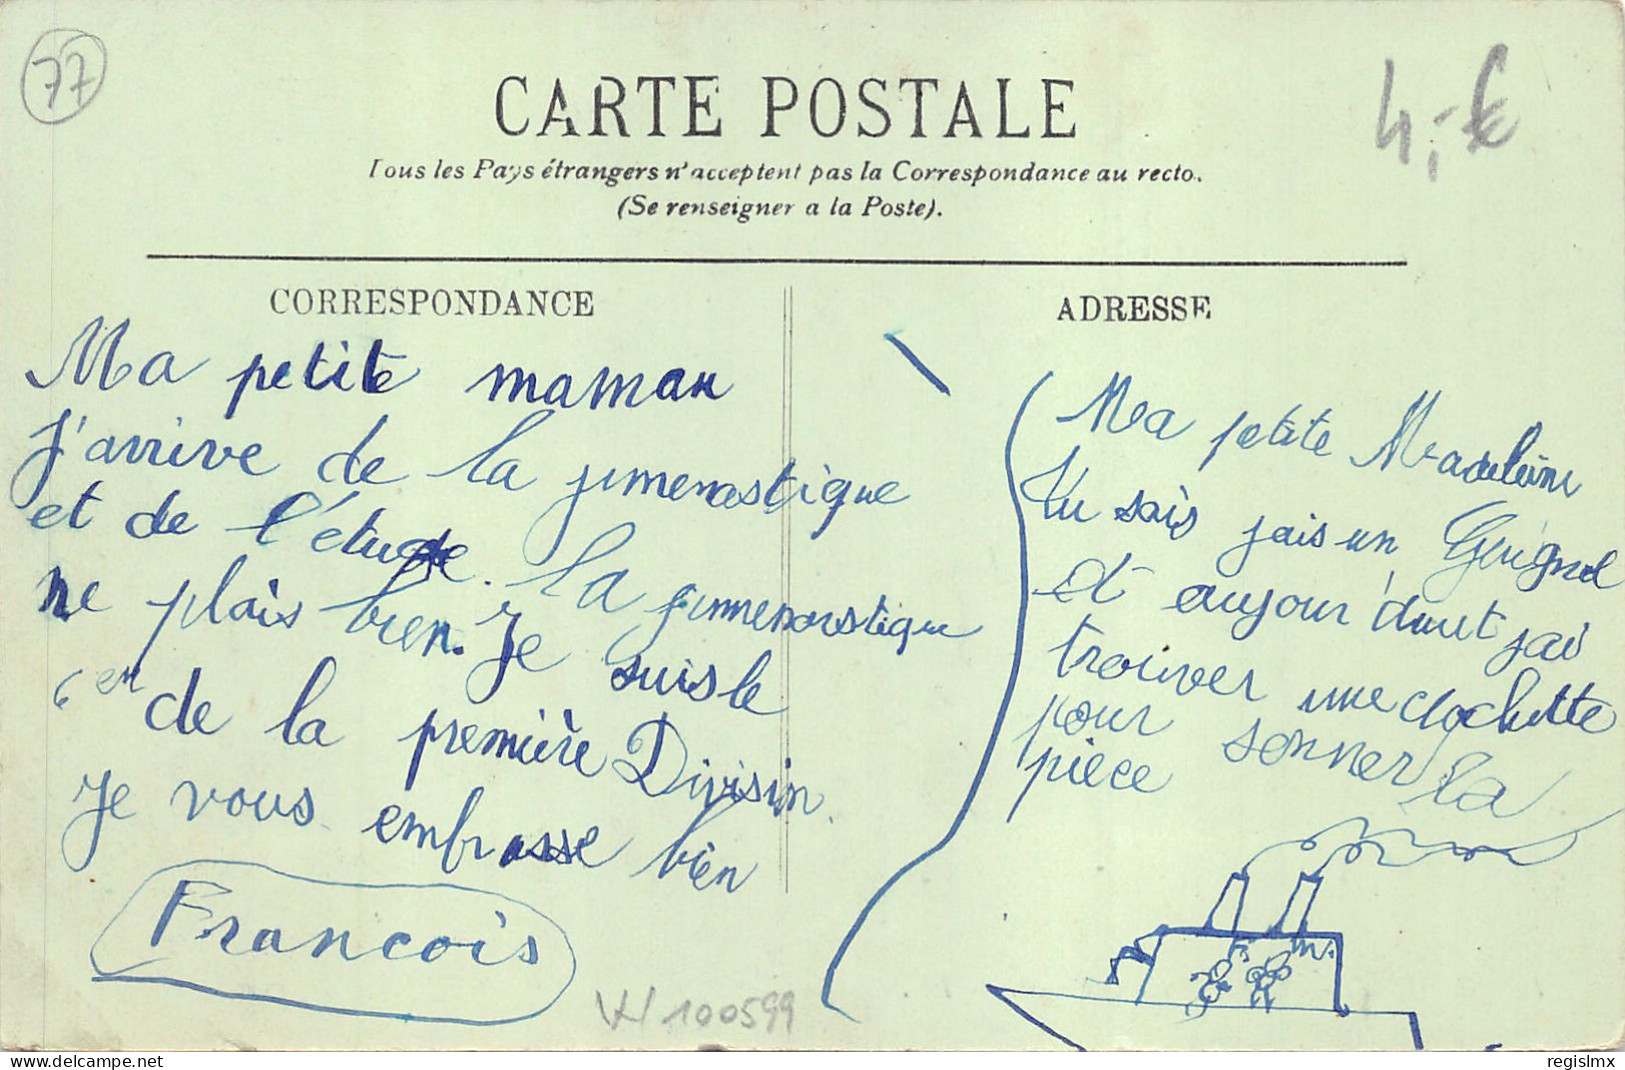 77
4,-€
CARTE POSTALE
Tous les Pays étrangers n'acceptent pas la Correspondance au recto.
(Se renseigner a la Poste).
CORRESPONDANCE
Ma petite maman
J'arrive de la jimenastique
et de l'étude. La jimmenastique
ne plais bien. Je suis le
6en de la première Division.
Je vous embrasse bien
François
ADRESSE
Ma petite Madeleine
Tu sais jais un Guignol
et aujour'dhut jai
trouver une clochette
pour sonner la
pièce
F. m.
100599
regislmx